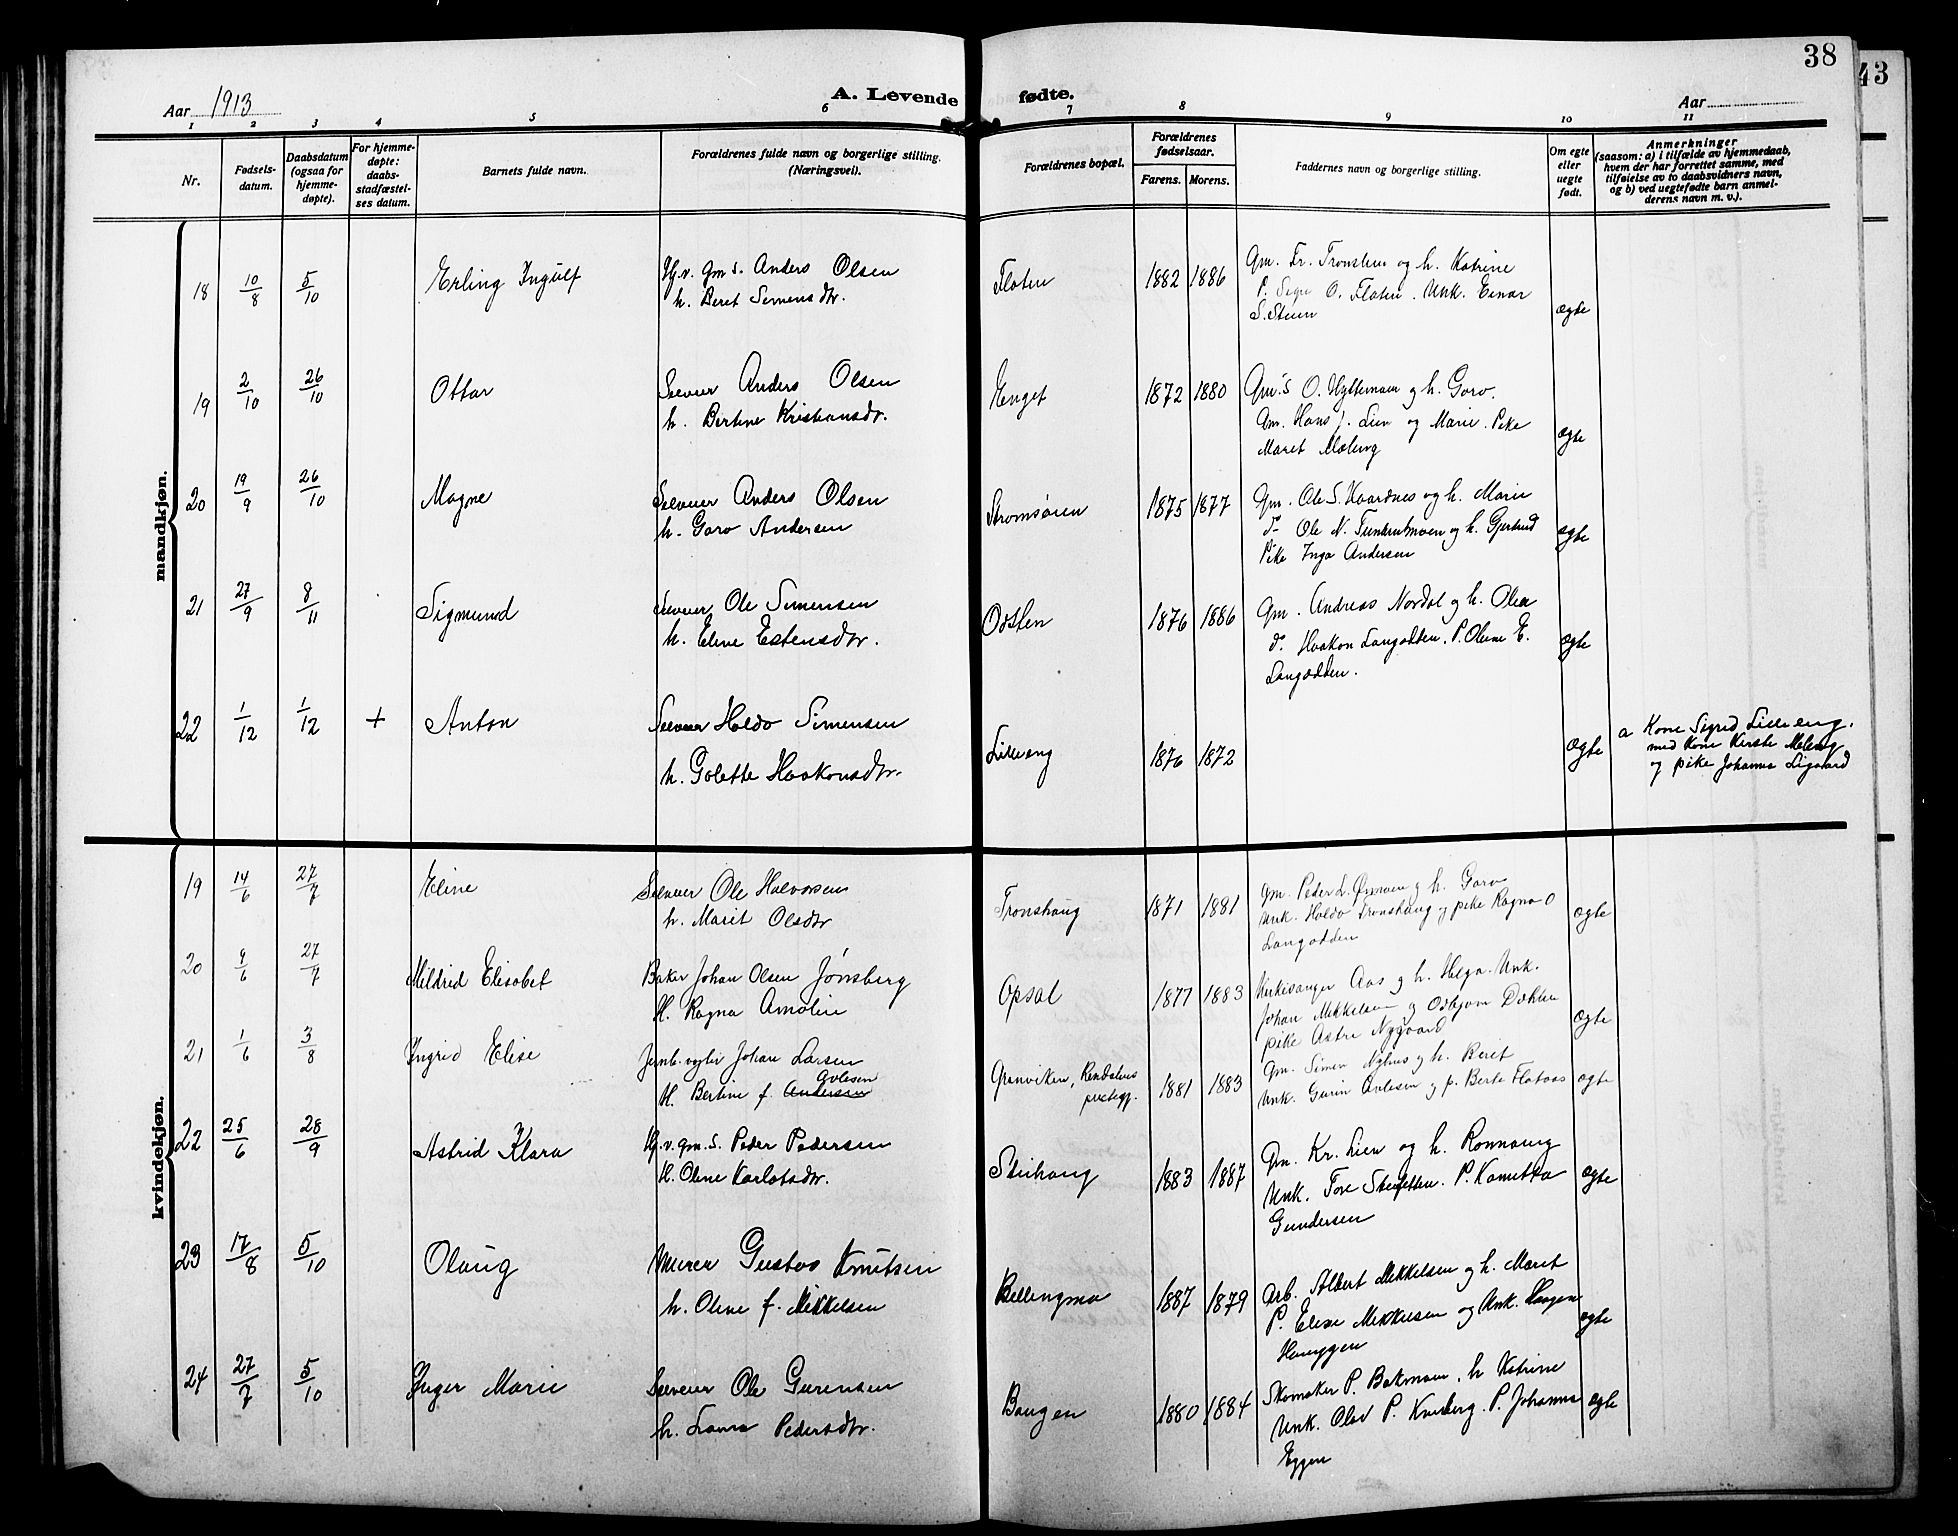 38
43
Aar 1913
A. Levende fødte.
Aar
1 2 3 4 5 6 7 8 9 10 11
Nr.
Fødsels-
datum.
Daabsdatum
(ogsaa for
hjemme-
døpte).
For hjemme-
døpte:
daabs-
stadfæstel-
ses datum.
Barnets fulde navn.
Forældrenes fulde navn og borgerlige stilling.
(Næringsvei).
Forældrenes bopæl.
Forældrenes
fødselsaar.
Farens. Morens.
Faddernes navn og borgerlige stilling.
Om egte
eller
uegte
født.
Anmerkninger
(saasom: a) i tilfælde av hjemmedaab,
hvem der har forrettet samme, med
tilføielse av to daabsvidners navn,
og b) ved uegtefødte barn anmel-
derens navn m. v.).
mandkjøn.
18 10/8 5/10 Erling Ingulf
Hf. v. gm s. Anders Olsen
h. Beret Simensdtr.
Floten 1882 1886
Gm. Fr. Tronslien og h. Katrine
P. O. Floten. Unk. Einar
S. Steen
egte
19 2/10 26/10 Ottar
Selveier Anders Olsen
h. Bertine Kristiansdtr.
Enget 1872 1880
Gm. S O. Hyttemoen og h. Goro.
Gm. Hans J. Lien og Marie. Pike
Maret Mæleng
egte
20 19/9 26/10 Magne
Selveier Anders Olsen
h. Goro Andersen
Strømsøien 1875 1877
Gm. Ole S. og h. Marie
do Ole N. og h. Gjertrud
Pike Inga Andersen
egte
21 27/9 8/11 Sigmund
Selveier Ole Simensen
h. Eline Estensdtr.
Odsten 1876 1886
Gm. Andreas Nordal og h. Olea
do. Haakon Langodden. P. Oline E.
Langodden.
egte
22 1/12 1/12 + Anton
Selveier Holdo Simensen
h. Golette Haakonsdtr.
Lilleeng 1876 1872
egte
a Kone Sigrid Lilleeng.
med Kone Kirste Meleng
og pike Johanna Ligaard
kvindekjøn.
19 14/6 27/7 Eline
Selveier Ole Halvorsen
h. Marit Olsdtr
Tronshaug 1871 1881
Gm. Peder L. Øymoen og h. Goro
Unk. Holdo Tronshaug og pike Ragna O
Langodden
egte
20 9/6 27/7 Mildrid Elisabet
Baker Johan Olsen Jønsberg
H. Ragna Amalie
Opsal 1877 1883
Kirkesanger Aas og h. Helga. Unk.
Johan Mikkelsen og Odbjørn Dahlen
pike Astri Nygaard
egte
21 1/6 3/8 Ingrid Elise
Jernb. vogter Johan Larsen
Avlesen
H. Bertine f. Andersen
Granviken, Rendalens
prestegj.
1881 1883
Gm. Simen Nyhus og h. Berit
Unk. Gurin Avlesen og p. Berte Flotaas
egte
22 25/6 28/9 Astrid Klara
Hf. v. gm. s. Peder Pedersen
H. Oline Karlotsdtr.
Steihaug 1883 1887
Gm. Kr. Lien og h. Ronnaug
Unk. Tore P. Kamitta
Gundersen
egte
23 17/8 5/10 Olaug
Murer Gustav Knutsen
h. Oline f. Mikkelsen
Bellingmo 1887 1879
Arb. Albert Mikkelsen og h. Marit
P. Elise Mikkelsen og Unk. Haagen
Hauggen
egte
24 27/7 5/10 Inger Marie
Selveier Ole Gurensen
h. Laura Pedersdtr.
Baugen 1880 1884
Skomaker P. Bakmoen, h Katrine
Unk. Olav P. Kvisberg. P. Johanna
Eggen
egte